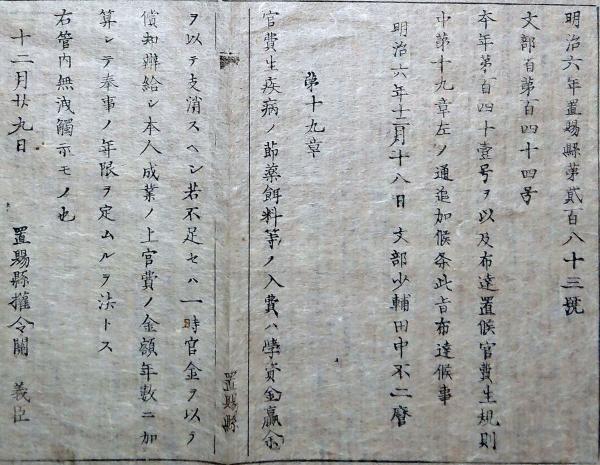 明治六年置賜縣第貳百八十三號
文部省第百四十四号
本年第百四十壹号ヲ以及布達置候官費生規則
中第十九章左ノ通追加候条此旨布達候事
明治六年十二月十八日 文部少輔田中不二麿
第十九章
官費生疾病ノ節藥餌料等ノ入費ハ學資金贏余
置賜縣
ヲ以テ支消スヘシ若不足セハ一時官金ヲ以テ
償却辦給シ本人成業ノ上官費ノ金額年数ニ加
算シテ奉事ノ年限ヲ定ムルヲ法トス
右管内無洩觸示モノ也
十二月廿九日 置賜縣權令關 義臣